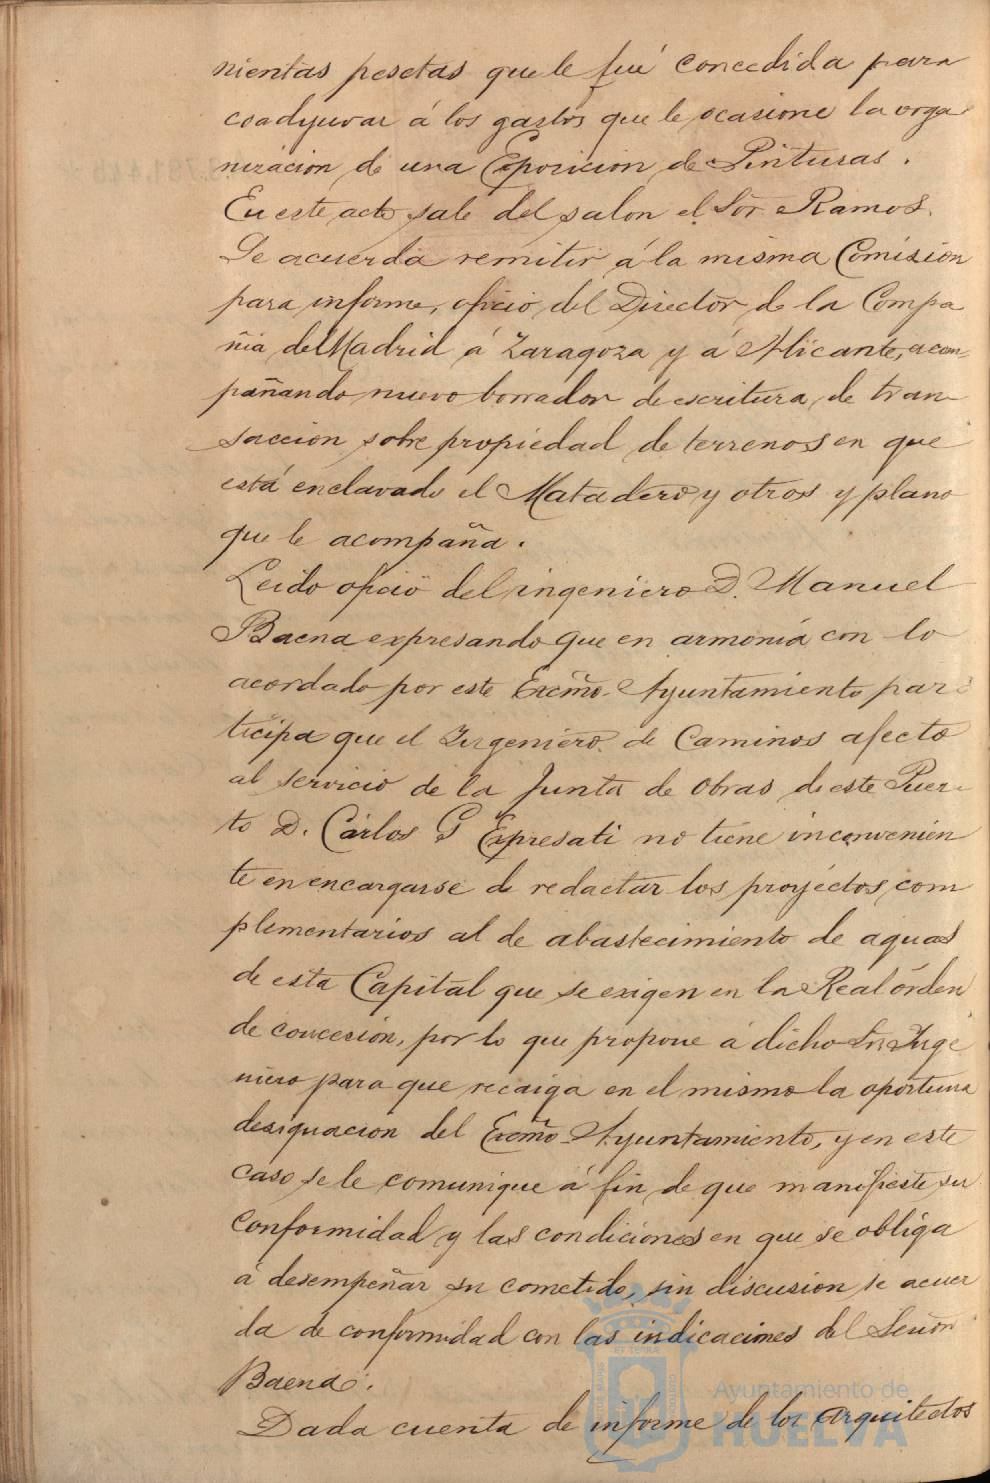 nientas pesetas que le fué concedida para
coadyuvar á los gastos que le ocasione la orga
nizacion de una Exposicion de Pinturas.
En este acto sale del salon el Sor. Ramos.
Se acuerda remitir á la misma Comision
para informe, oficio del Director de la Compa
ñia del Madrid á Zaragoza y á Alicante, acom-
pañando nuevo borrador de escritura de tran
saccion sobre propiedad de terrenos en que
está enclavado el Matadero y otros y plano
que le acompaña.
Leido oficio del ingeniero D. Manuel
Baena expresando que en armonía con lo
acordado por este Excmo. Ayuntamiento par
ticipa que el Ingeniero de Caminos afecto
al servicio de la Junta de Obras de este Puer-
to D. Cárlos G Expresati no tiene inconvenien
te en encargarse de redactar los proyéctos com
plementarios al de abastecimiento de aguas
de esta Capital que se exigen en la Real órden
de concesion, por lo que propone á dicho Sr. Inge
niero para que recaiga en el mismo la oportuna
designacion del Excmo. Ayuntamiento, y en este
caso se le comunique á fin de que manifieste su
conformidad y las condiciones en que se obliga
á desempeñar su cometido, sin discusion se acuer
da de conformidad con las indicaciones del Señor
Baena.
Dada cuenta de informe de los Arquitectos
Ayuntamiento de
HUELVA